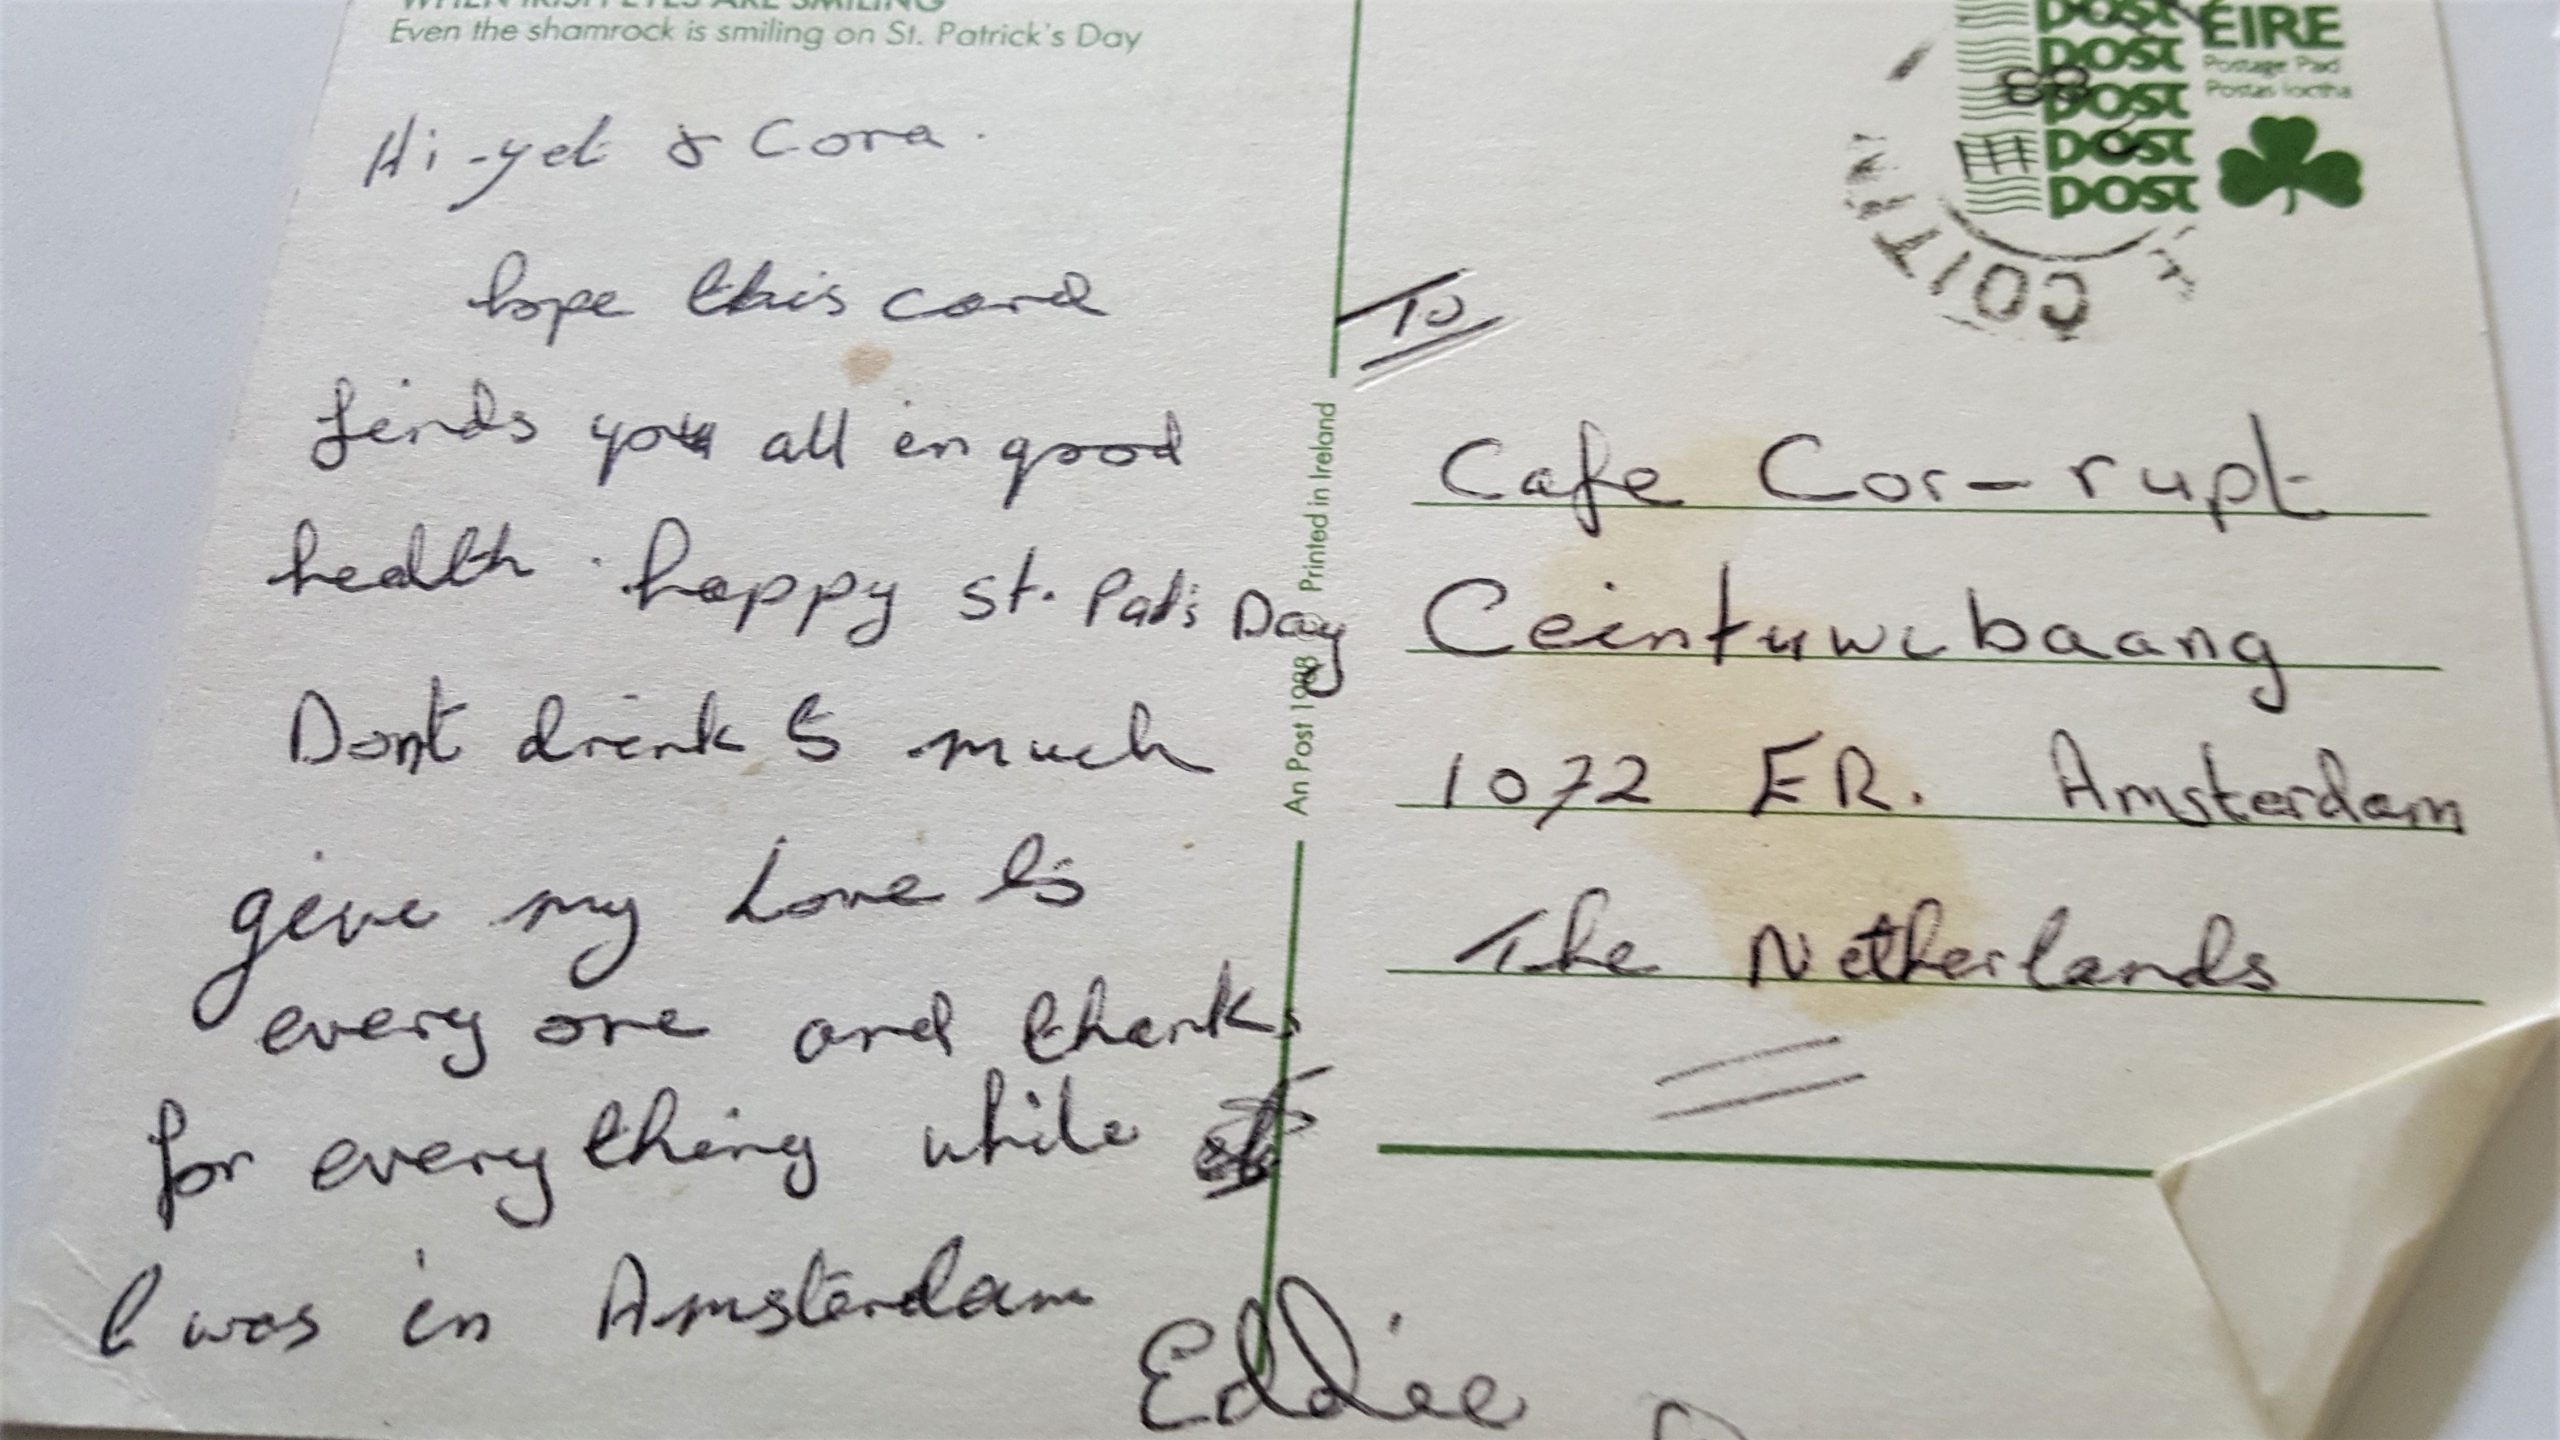 WHEN IRISH EYES ARE SMILING
Even the shamrock is smiling on St. Patrick's Day
Hi-yet & Cora.
hope this card
finds you all in good
health. happy st. Pat's Day
Dont drink to much
give my Love to
every one and thanks
for everything while
I was in Amsterdam
Eddie
An Post 1988 Printed in Ireland
POST ÉIRE
POST Postage Paid
POST Postas Íoctha
POST
POST
88
COITR
To
Cafe Cor-rupt
Ceintuwcbaang
1072 ER. Amsterdam
The Netherlands